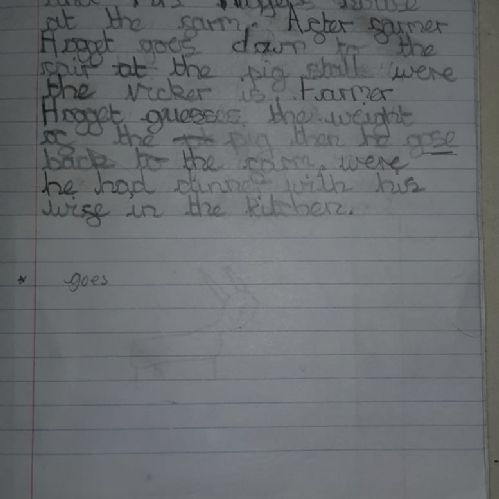 at the sarm. Aster sarmer
Hogget goes down to the
sair at the pig stall were
the vicker is. Farmer
Hogget guesses the weight
os the pig then he gose
back to the sarm were
he had dinner with his
wise in the kitchen.
* goes